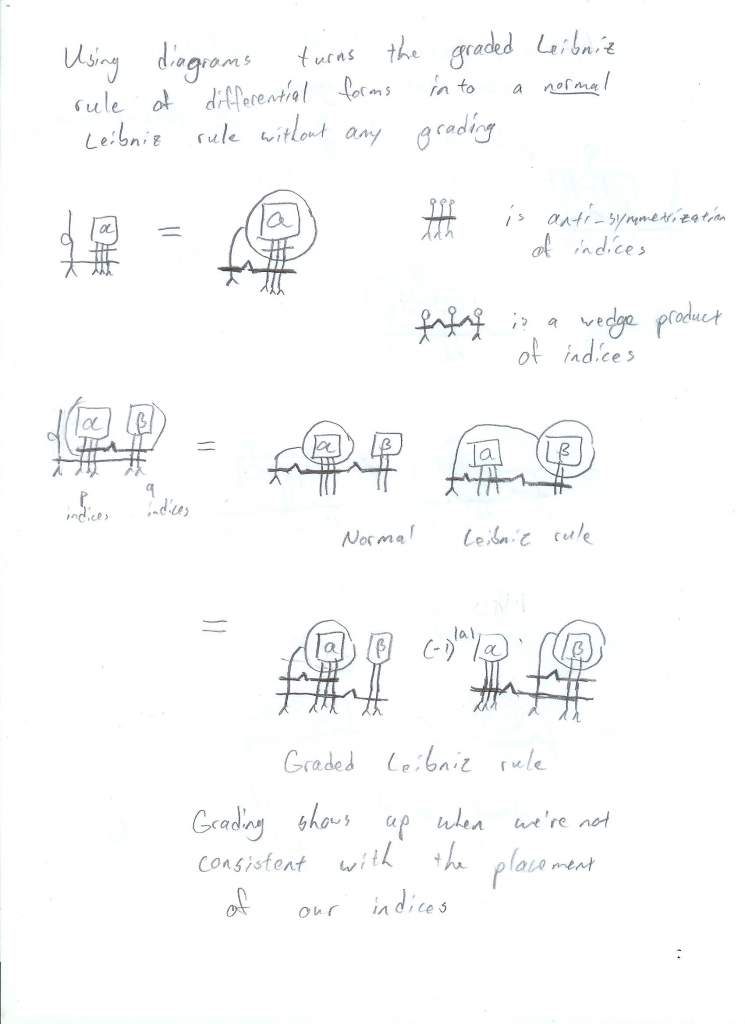 Using diagrams turns the graded Leibniz
rule of differential forms in to a normal
Leibniz rule without any grading
d α = α
is anti-symmetrization
of indices
is a wedge product
of indices
d α β = α β α β
p indices q indices
Normal Leibniz rule
= α β (-1)^|a| α β
Graded Leibniz rule
Grading shows up when we're not
consistent with the placement
of our indices